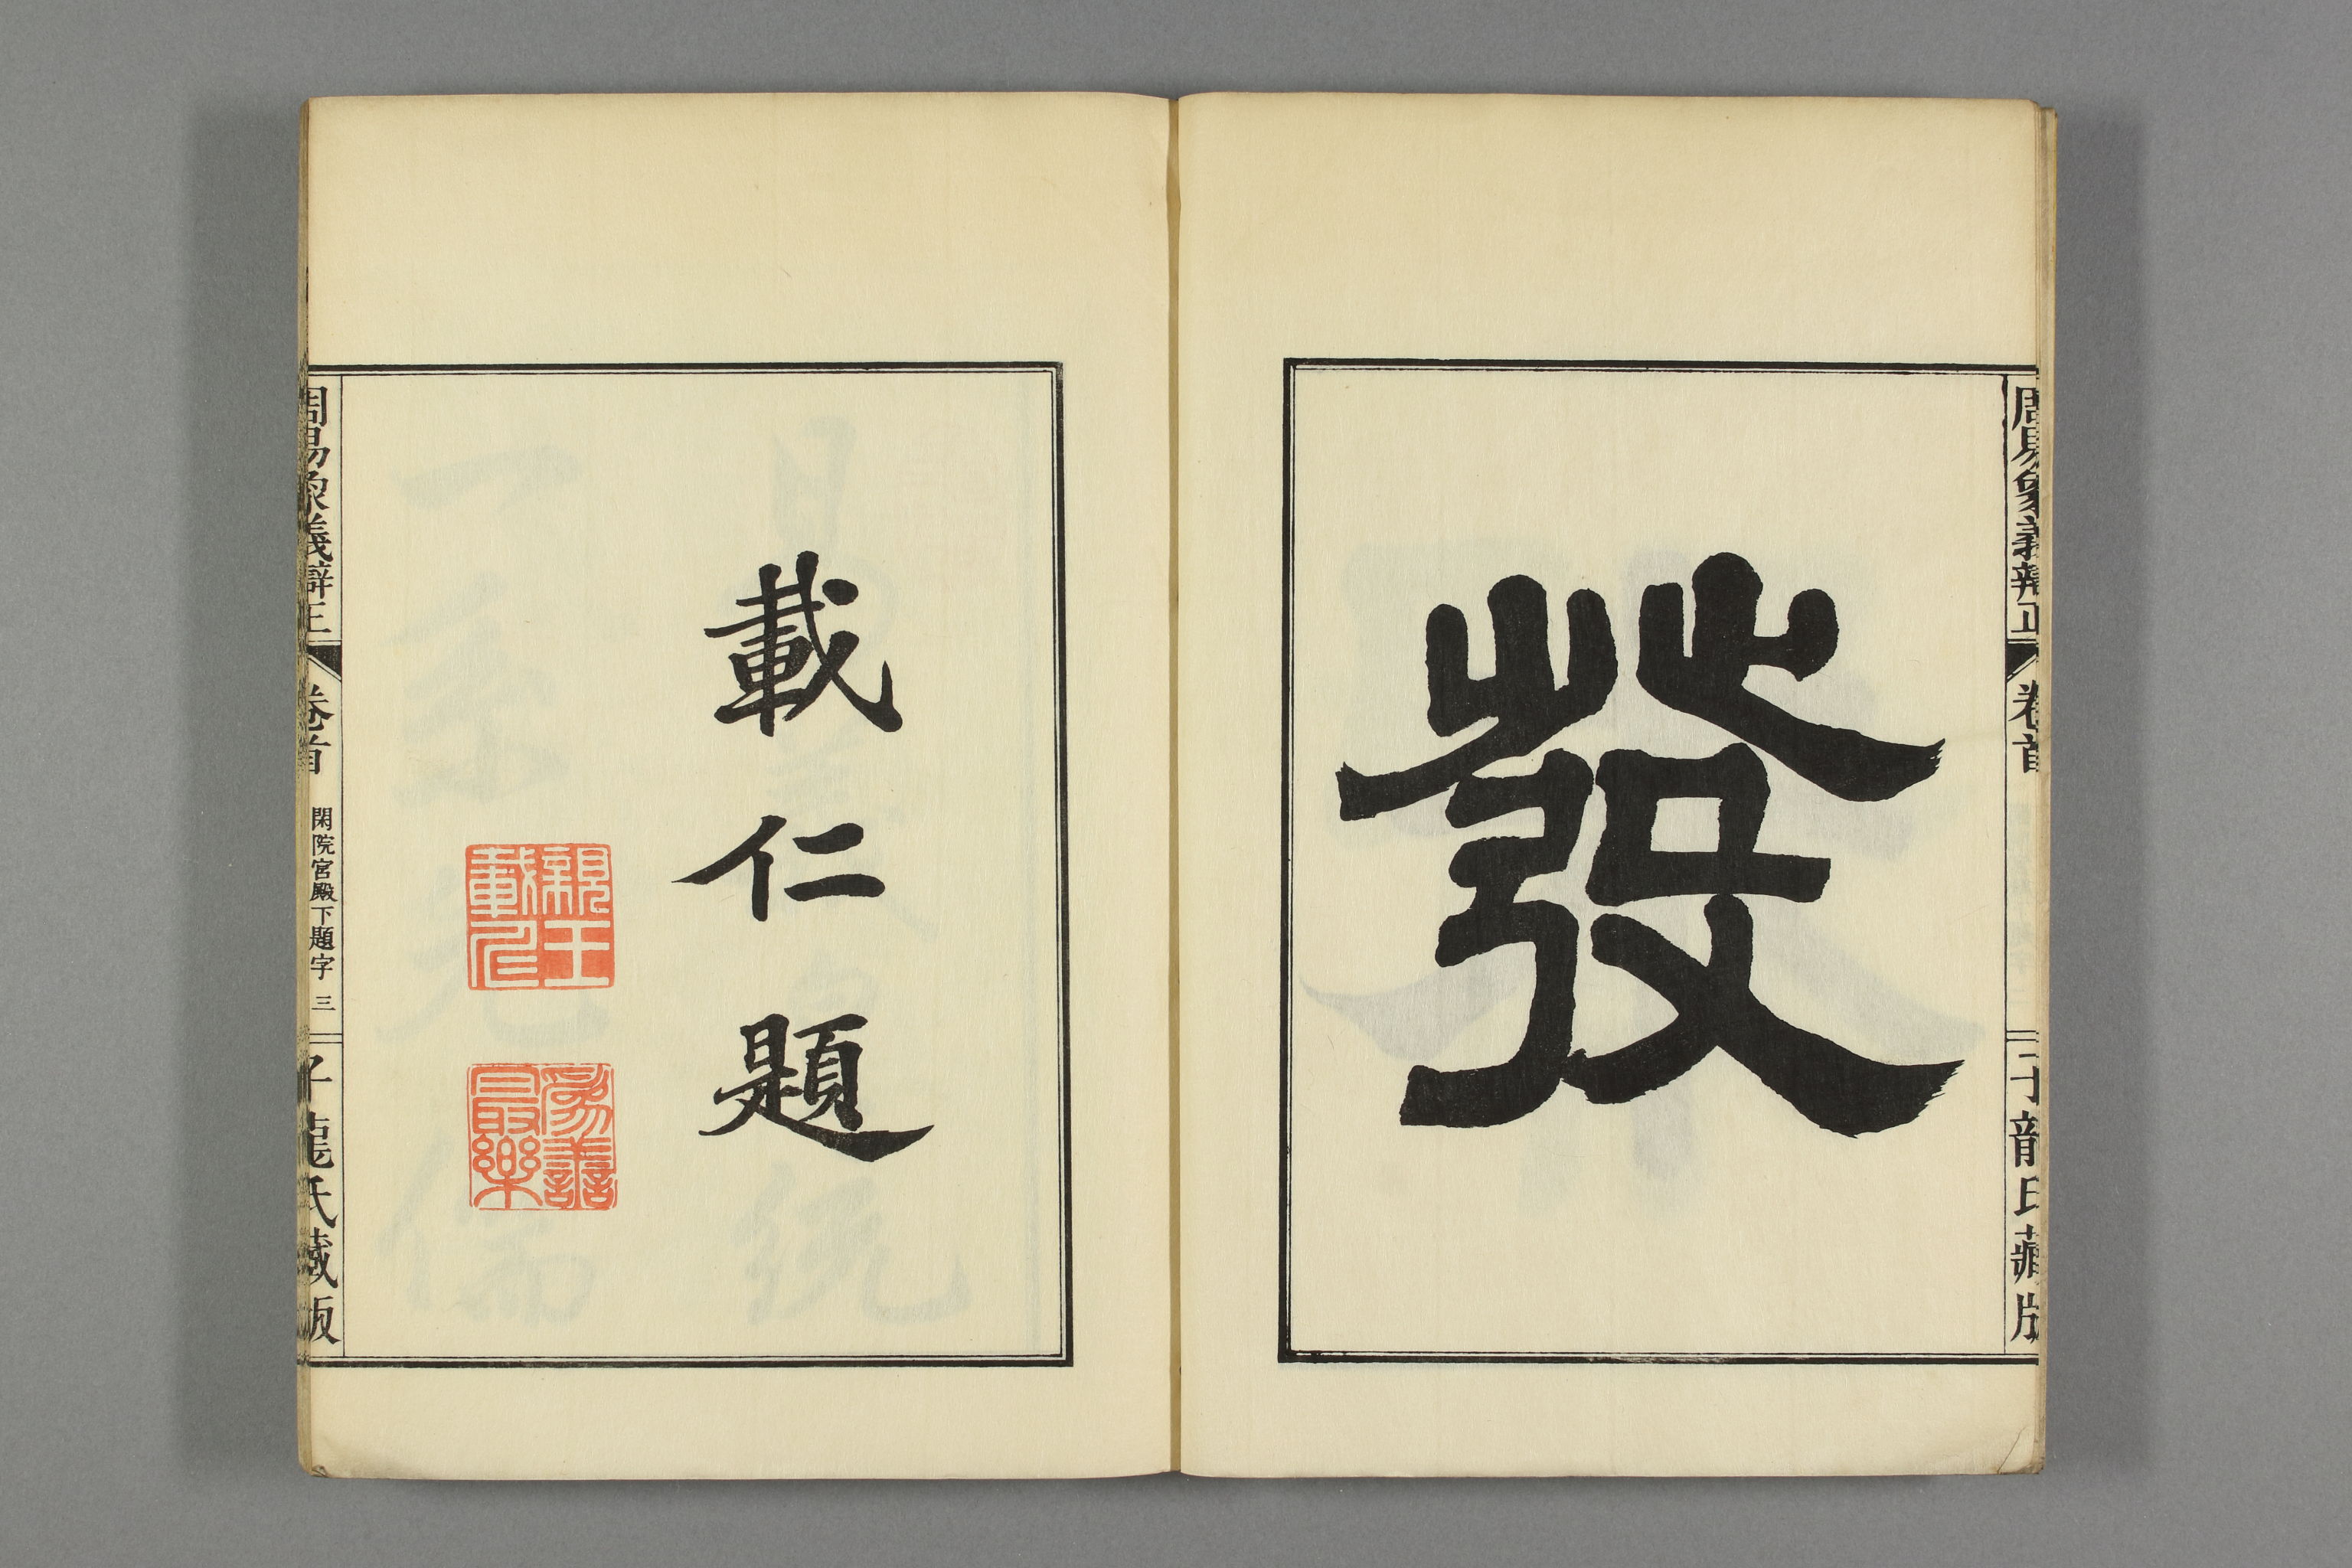 周易象義辯正
卷首
子龍氏藏版
發
載仁題
親王載仁
為善最樂
周易象義辯正
卷首
閑院宮殿下題字 三
子龍氏藏版